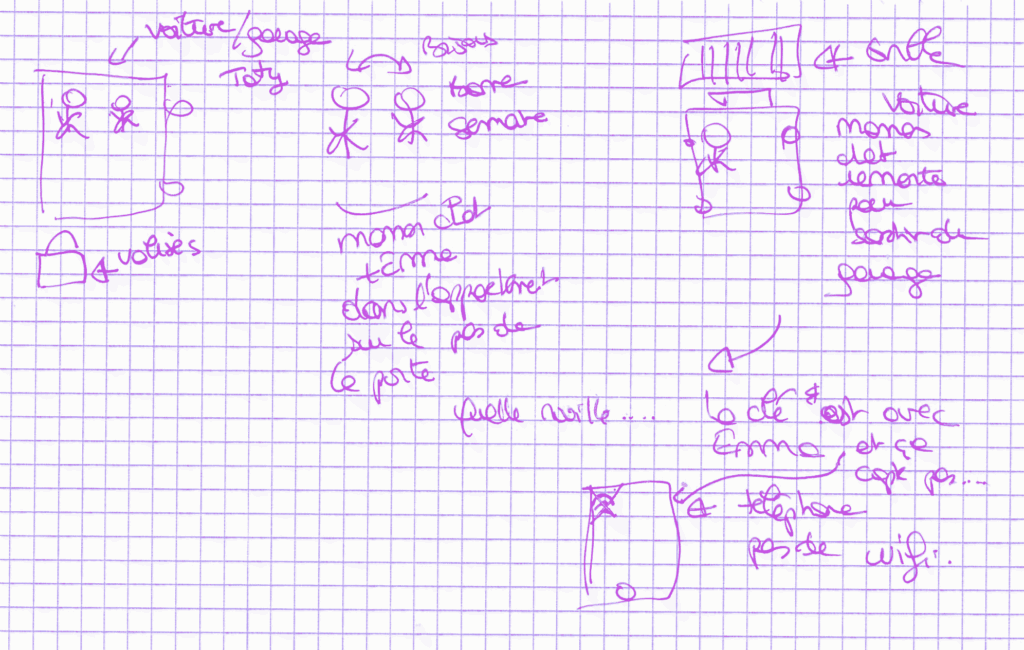 voiture/garage
Taty
Bisous
bonne
semaine
valises
maman et
Emma
dans l'appartement
sur le pas de
la porte
grille
voiture
maman
doit
remonter
pour
sortir du
garage
quelle nouille....
la clé est avec
Emma et ça
capte pas...
téléphone
pas de wifi.